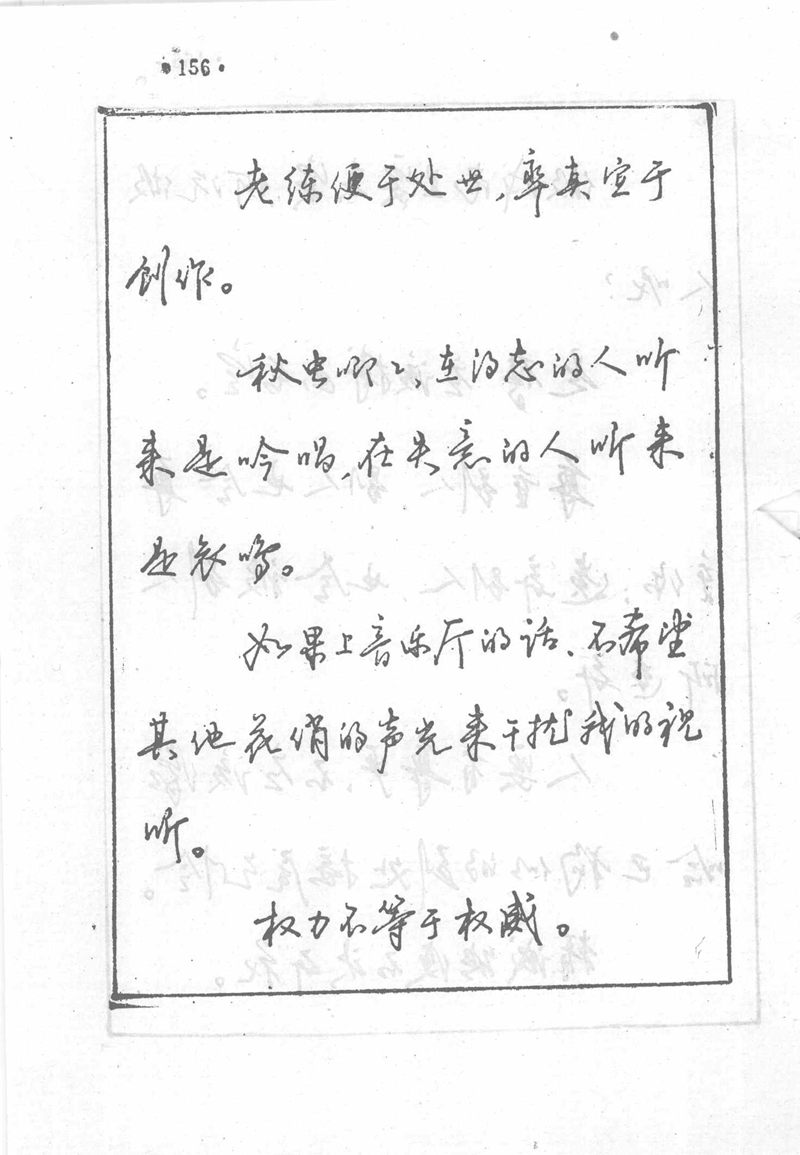 ·156·
老练便于处世,率真宜于
创作。
秋虫唧々,在得志的人听
来是吟唱,在失意的人听来
是哀鸣。
如果上音乐厅的话、不希望
其他花俏的声光来干扰我的视
听。
权力不等于权威。